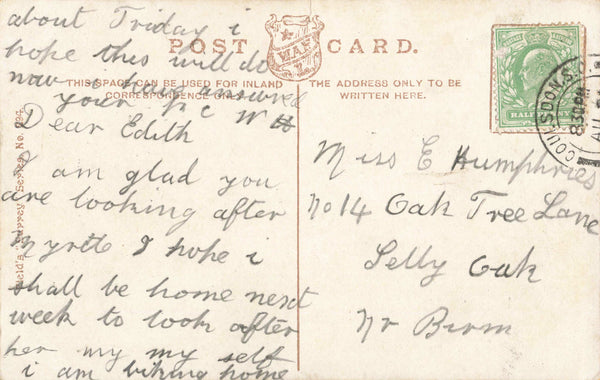 about Friday i
hope this will do
now i haig answered
your P C W H
POST CARD.
WAF
THIS SPACE CAN BE USED FOR INLAND
CORRESPONDENCE ONLY
THE ADDRESS ONLY TO BE
WRITTEN HERE.
Dear Edith
I am glad you
are looking after
Myrtle I hope i
shall be home next
week to look after
her my my self
i am biking home
Miss E Humphries
No 14 Oak Tree Lane
Selly Oak
Nr Birm
COULSDON S.
8.30 PM
AU
HALF
Surrey Series No.